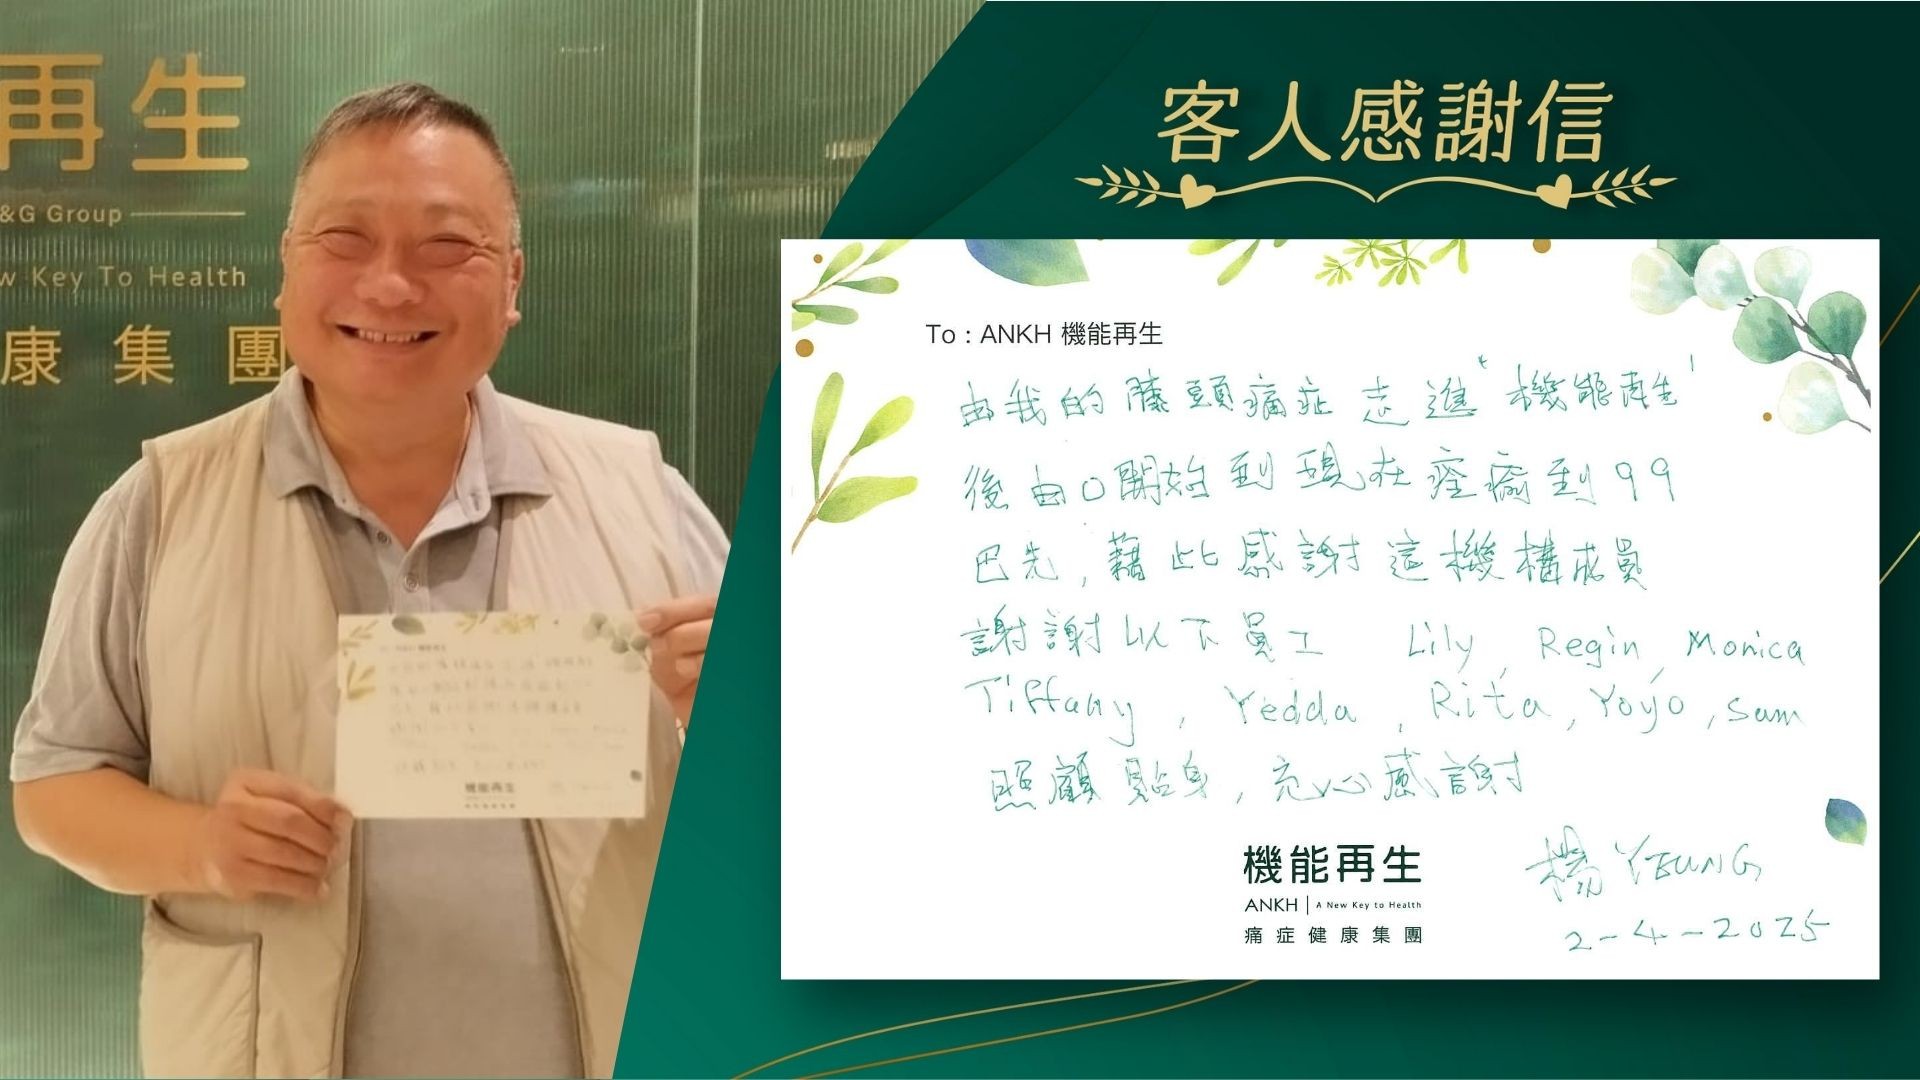 再生
&G Group
w Key To Health
康集團
客人感謝信
To : ANKH 機能再生
由我的膝頭痛症走進"機能再生'
後由0開始到現在痊癒到99
巴先,藉此感謝這機構成員
謝謝以下員工 Lily, Regin, Monica
Tiffany, Yedda, Rita, Yoyo, Sam
照顧貼身,充心感謝
機能再生
ANKH | A New Key to Health
痛症健康集團
楊 YEUNG
2-4-2025